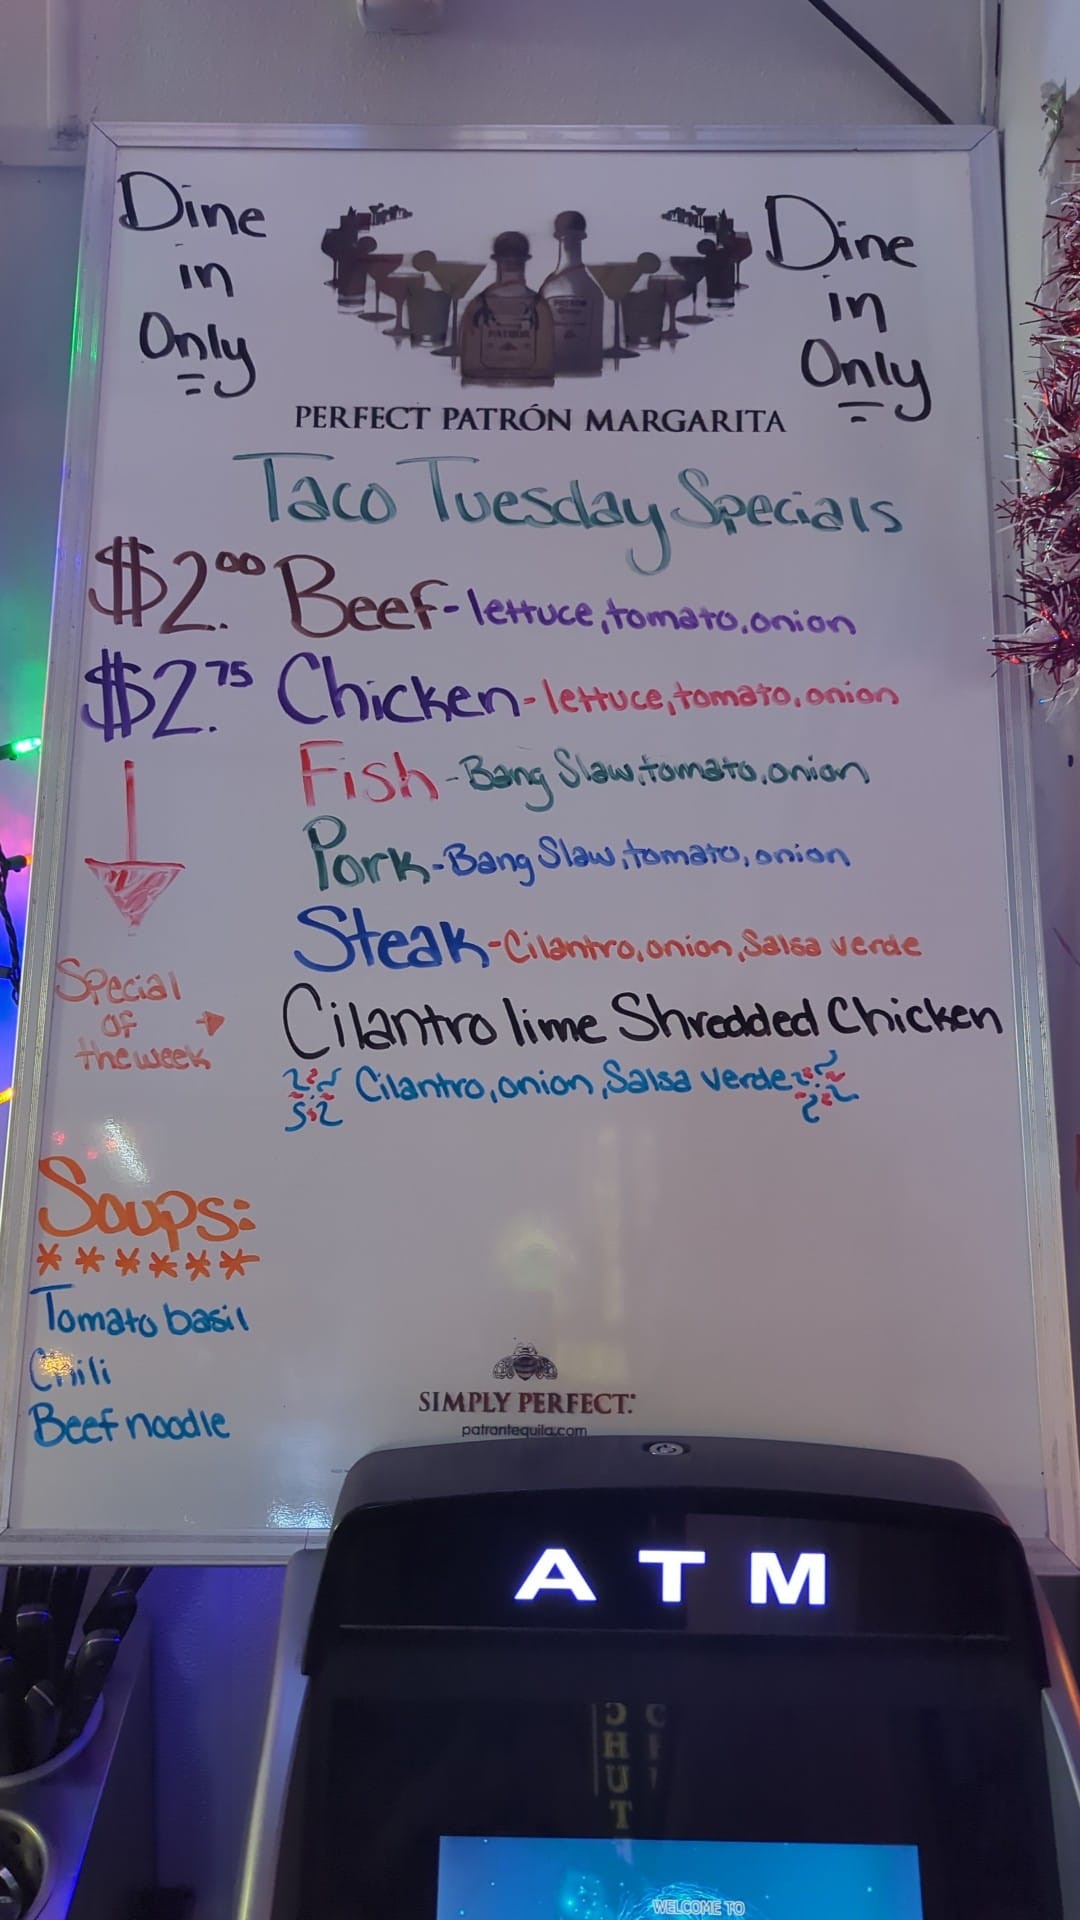 Dine
in
Only
Dine
in
Only
PERFECT PATRÓN MARGARITA
Taco Tuesday Specials
$2.00 Beef-lettuce,tomato,onion
$2.75 Chicken-lettuce,tomato,onion
Fish-Bang Slaw,tomato,onion
Pork-Bang Slaw,tomato,onion
Steak-Cilantro,onion,Salsa verde
Special
of
the week
Cilantro lime Shredded Chicken
Cilantro,onion,Salsa verde
Soups:
******
Tomato basil
Chili
Beef noodle
SIMPLY PERFECT.
patrontequila.com
ATM
WELCOME TO